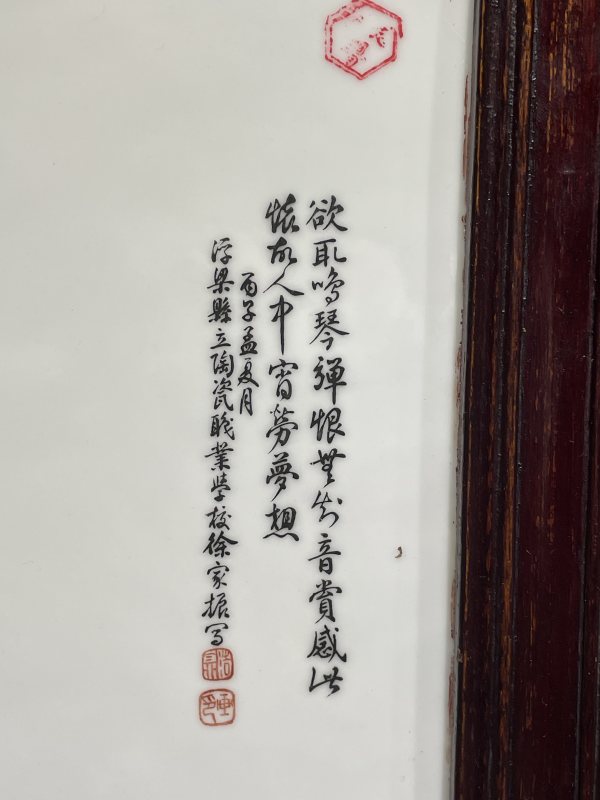 欲取鳴琴彈恨無知音賞感此
懷故人中宵勞夢想
丙子孟夏月
浮梁縣立陶瓷職業學校徐家振寫